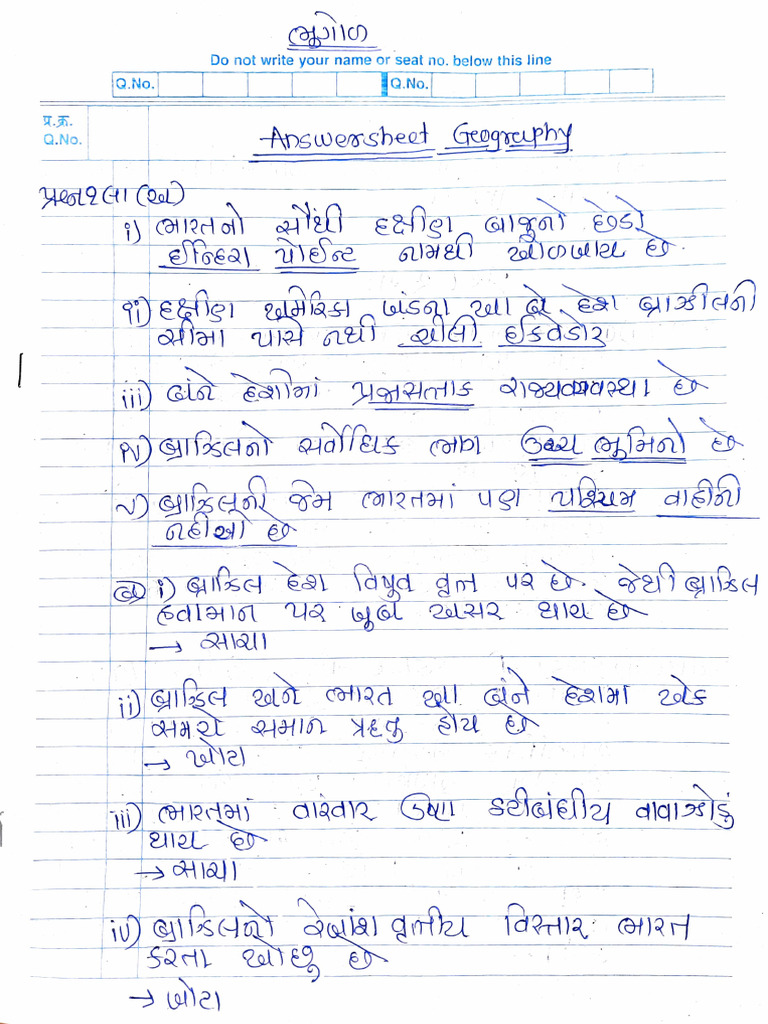 ભૂગોળ
Do not write your name or seat no. below this line
Q.No. Q.No.
प्र.क्र.
Q.No.
Answersheet Geography
પ્રશ્ન૧લા (અ)
i) ભારતનો સૌથી દક્ષીણ બાજુનો છેડો
ઈન્દિરા પોઈન્ટ નામથી ઓળખાય છે.
ii) દક્ષીણ અમેરિકા ખંડના આ બે દેશ બ્રાઝીલની
સીમા પાસે નથી ચીલી ઈકવેડોર
iii) બંને દેશોમાં પ્રજાસત્તાક રાજ્યવ્યવસ્થા છે
iv) બ્રાઝિલનો સર્વાધિક ભાગ ઉચ્ચ ભૂમિનો છે
v) બ્રાઝિલની જેમ ભારતમાં પણ પશ્ચિમ વાહીની
નદીઓ છે
બ i) બ્રાઝિલ દેશ વિષુવ વૃત્ત પર છે. જેથી બ્રાઝિલ
હવામાન પર ખૂબ અસર થાય છે
→ સાચા
ii) બ્રાઝિલ અને ભારત આ બંને દેશમા એક
સમયે સમાન ઋતુ હોય છે
→ ખોટા
iii) ભારતમાં વારંવાર ઉષ્ણ કટીબંધીય વાવાઝોડું
થાય છે
→ સાચા
iv) બ્રાઝિલનો રેખાંશ વૃત્તીય વિસ્તાર ભારત
કરતા ઓછુ છે
→ ખોટા